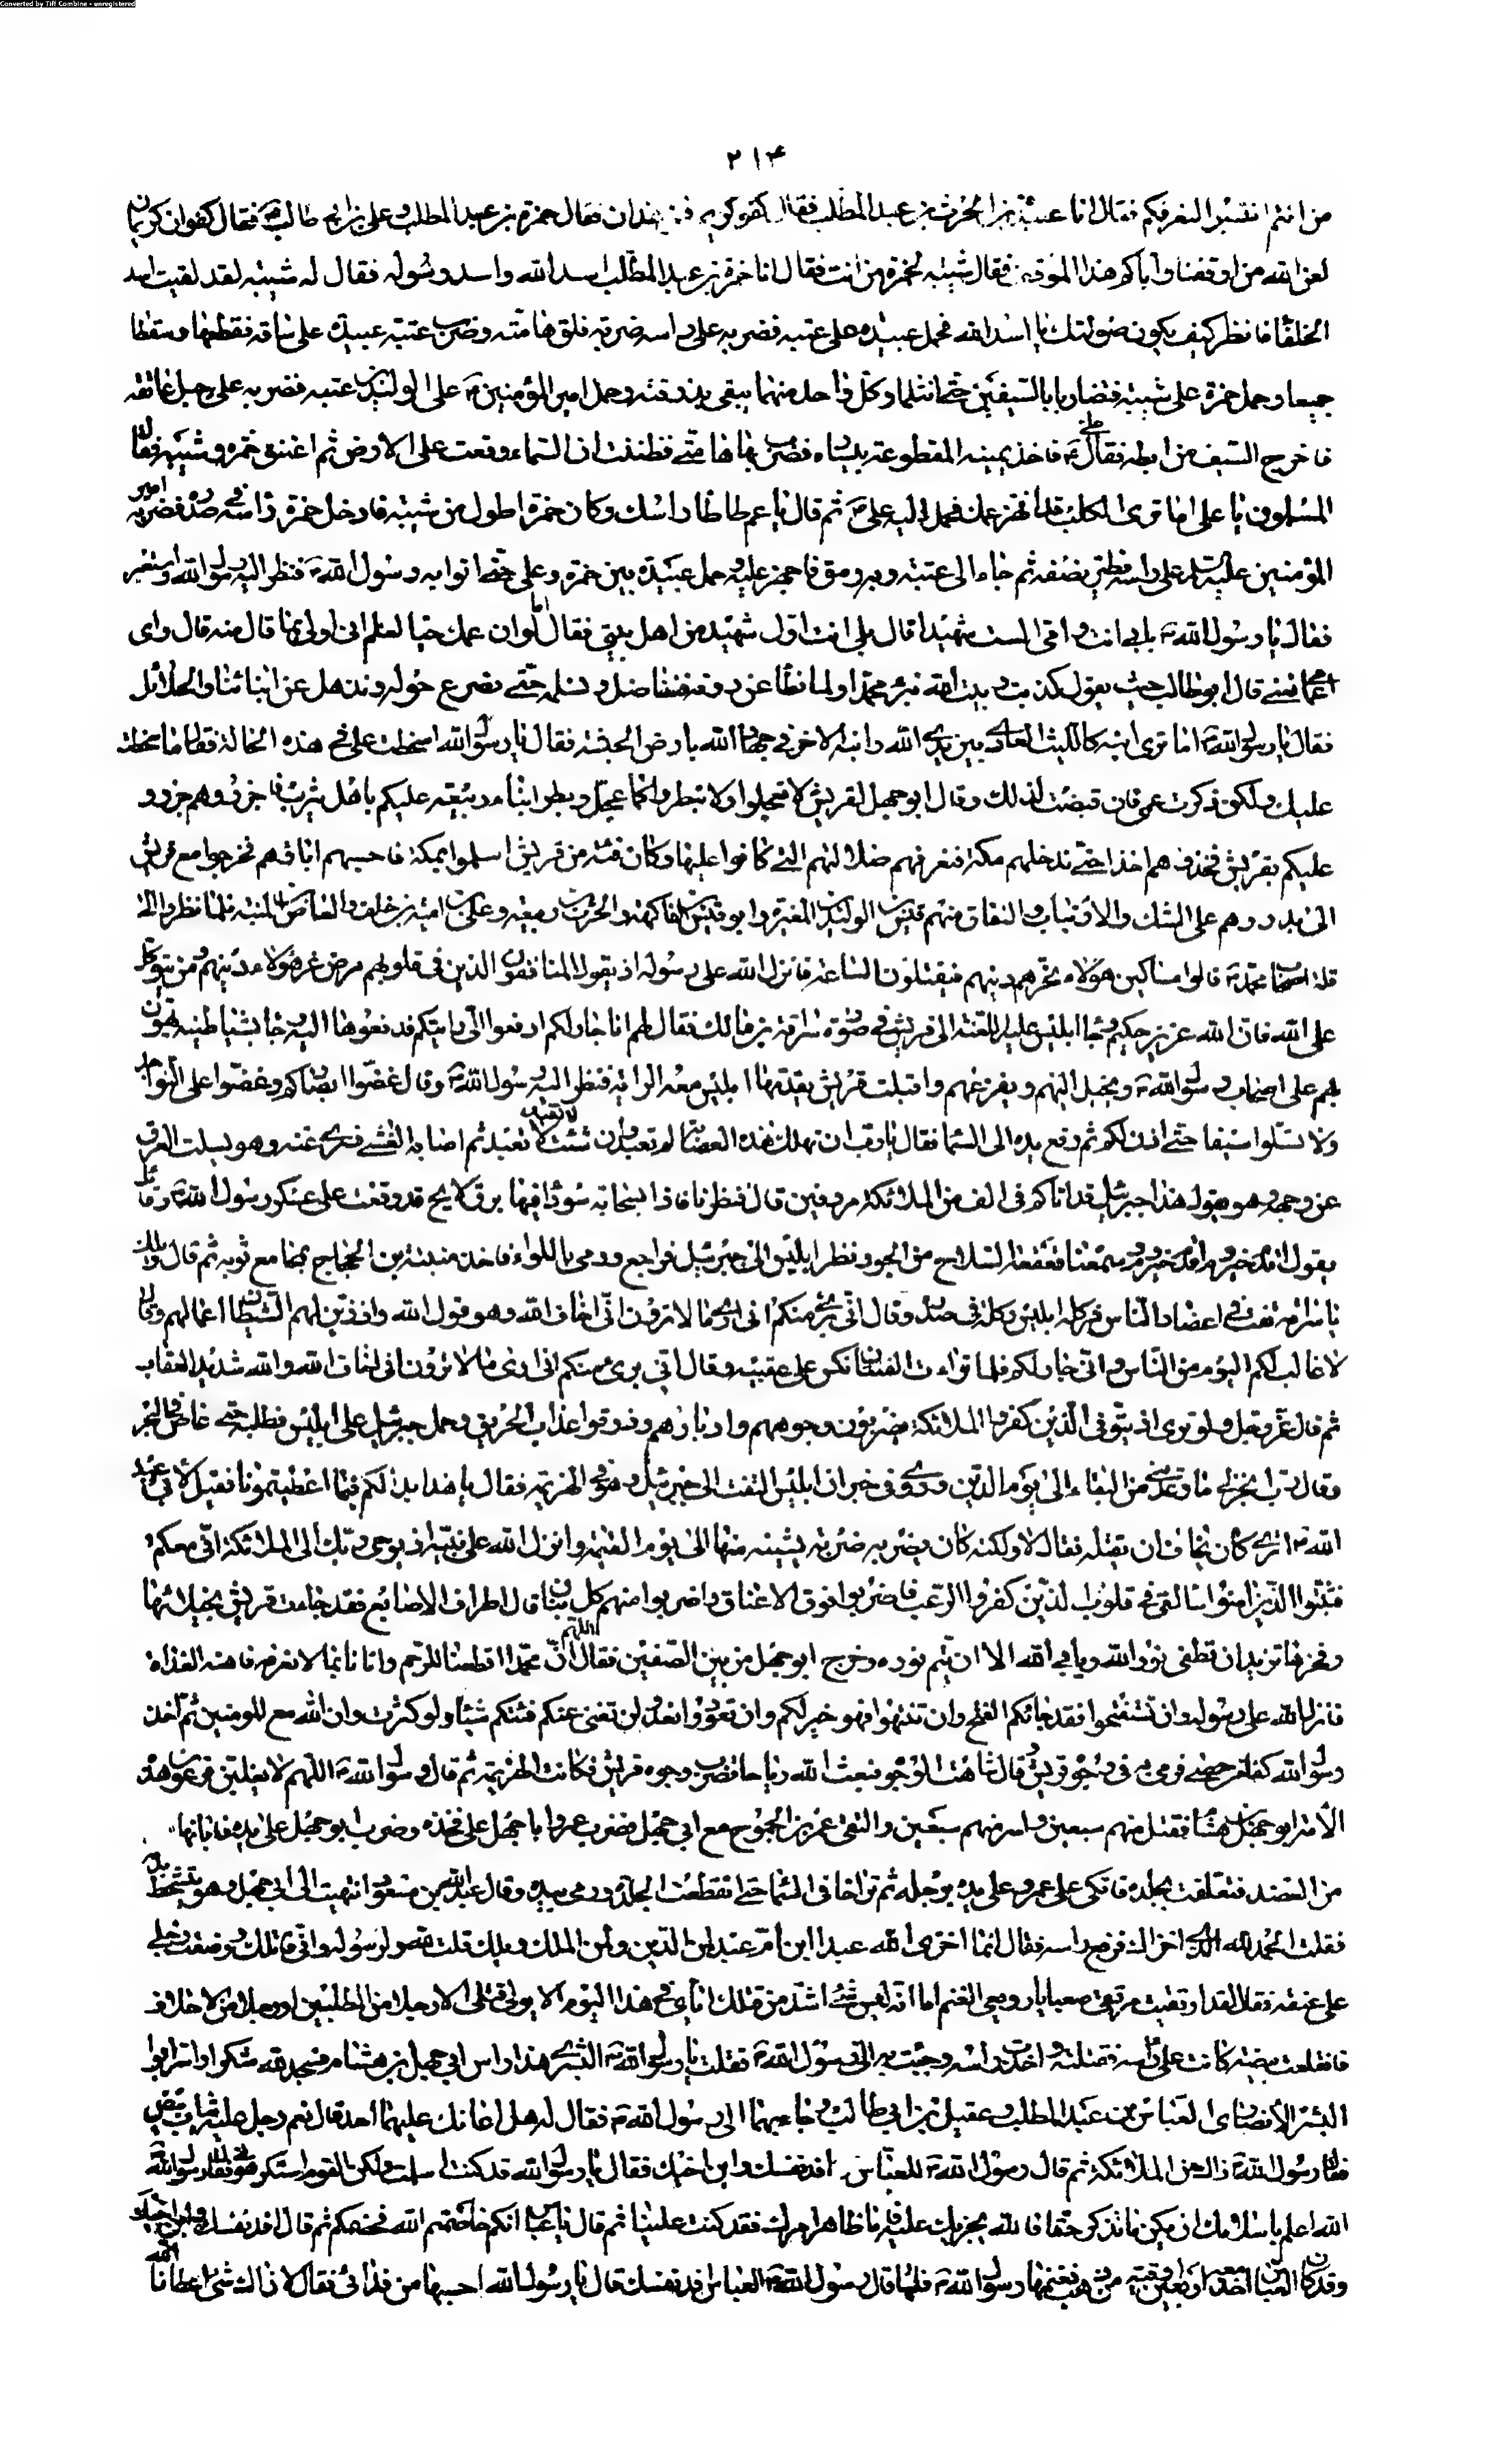 Converted by Tiff Combine - unregistered
٢١۴
من انتم انتسبوا لنعرفكم فقال انا عبيدة بن الحرث بن عبد المطلب فقال كفو كريم فمن هذان فقال حمزة بن عبد المطلب وعلى بن ابى طالب ع فقال كفوان كريمان
لعن الله من اوقفنا واياكم هذا الموقف فقال شيبه لحمزة من انت فقال انا حمزة بن عبد المطلب اسد الله واسد رسوله فقال له شيبه لقد لقيت اسد
الحلفاء فانظر كيف يكون صولتك يا اسد الله فحمل عبيده على عتبه فضربه على راسه ضربة فلق هامته وضرب عتبة عبيدة على ساقه فقطعها وسقطا
جميعا وحمل حمزة على شيبة فتضاربا بالسيفين حتى انثلما وكل واحد منهما يتقى بدرقته وحمل امير المؤمنين ع على الوليد بن عتبه فضربه على حبل عاتقه
فاخرج السيف من ابطه فقال على ع فاخذ يمينه المقطوعة بيساره فضرب بها هامتى فظننت ان السماء وقعت على الارض ثم اعتنق حمزه وشيبه فقال
المسلمون يا على اما ترى الكلب قد ابهر عمك فحمل اليه على ع ثم قال يا عم طاطا راسك وكان حمزة اطول من شيبه فادخل حمزة راسه فى صدره فضربه امير
المؤمنين عليه السلم على راسه فطير نصفه ثم جاء الى عتبه وبه رمق فاجهز عليه وحمل عبيده بين حمزه وعلى حتى اتوا به رسول الله ص فنظر اليه رسول الله واستعبر
فقال يا رسول الله ص بابى انت وامى الست شهيدا قال بلى انت اول شهيد من اهل بيتى فقال اما لو ان عمك حيا لعلم انى اولى بما قال منه قال واى
اعمامى تعنى قال ابو طالب حيث يقول كذبتم وبيت الله نبزى محمدا ولما نطاعن دونه ونناضل ونسلمه حتى نصرع حوله ونذهل عن ابنائنا والحلائل
فقال يا رسول الله ص اما ترى ابنه كالليث العادى بين يدى الله وابنه الاخر فى جهاد الله بارض الحبشه فقال يا رسول الله اسخطت على فى هذه الحالة فقال ما سخطت
عليك ولكن ذكرت عمى فانقبضت لذلك وقال ابو جهل لقريش لا تعجلوا ولا تبطروا كما عجل وبطر ابنا ربيعه عليكم باهل يثرب فاجزروهم جزرا و
عليكم بقريش فخذوهم اخذا حتى ندخلهم مكة فنعرفهم ضلالتهم التى كانوا عليها وكان فئه من قريش اسلموا بمكة فاحتبسهم اباؤهم فخرجوا مع قريش
الى بدر وهم على الشك والارتياب والنفاق منهم قيس بن الوليد بن المغيرة وابو قيس بن الفاكهه والحرث بن ربيعه وعلى بن اميه بن خلف والعاص بن المنبه فلما نظروا الى
قلة اصحاب محمد ص قالوا مساكين هؤلاء غرهم دينهم فيقتلون الساعة فانزل الله على رسوله اذ يقول المنافقون والذين فى قلوبهم مرض غر هؤلاء دينهم ومن يتوكل
على الله فان الله عزيز حكيم وجاء ابليس عليه اللعنة الى قريش فى صورة سراقة بن مالك فقال لهم انا جار لكم ادفعوا الى رايتكم فدفعوها اليه وجاء بشياطينه يهول
بهم على اصحاب رسول الله ص ويخيل اليهم ويفزعهم واقبلت قريش يقدمها ابليس معه الراية فنظر اليه رسول الله ص وقال غضوا ابصاركم وعضوا على النواجد
ولا تسلوا سيفا حتى اذن لكم ثم رفع يده الى السماء فقال يا رب ان تهلك هذه العصابة لم تعبد وان شئت ان لا تعبد لا تعبد ثم اصابه الغشى فسرى عنه وهو يسلت العرق
عن وجهه وهو يقول هذا جبرئيل قد اتاكم فى الف من الملائكة مردفين قال فنظرنا فاذا بسحابة سوداء فيها برق لايح قد وقعت على عسكر رسول الله ص وقائل
يقول اقدم حيزوم اقدم حيزوم وسمعنا قعقعة السلاح من الجو ونظر ابليس الى جبرئيل فراجع ورمى باللواء فاخذ منبه بن الحجاج بمجامع ثوبه ثم قال ويلك
يا سراقة تفت فى اعضاد الناس فركله ابليس ركلة فى صدره وقال انى برىء منكم انى ارى ما لا ترون انى اخاف الله وهو قول الله واذ زين لهم الشيطان اعمالهم وقال
لا غالب لكم اليوم من الناس وانى جار لكم فلما تراءت الفئتان نكص على عقبيه وقال انى برىء منكم انى ارى ما لا ترون انى اخاف الله والله شديد العقاب
ثم قال عز وجل ولو ترى اذ يتوفى الذين كفروا الملائكة يضربون وجوههم وادبارهم وذوقوا عذاب الحريق وحمل جبرئيل على ابليس فطلبه حتى غاص فى البحر
وقال رب انجز لى ما وعدتنى من البقاء الى يوم الدين وروى فى خبر ان ابليس التفت الى جبرئيل وهو فى الهزيمة فقال يا هذا بدا لكم فيما اعطيتمونا فقيل لابى عبد
الله ع اترى كان يخاف ان يقتله فقال لا ولكنه كان يضربه ضربة يشينه منها الى يوم القيمة وانزل الله على نبيه اذ يوحى ربك الى الملائكة انى معكم
فثبتوا الذين امنوا سالقى فى قلوب الذين كفروا الرعب فاضربوا فوق الاعناق واضربوا منهم كل بنان قال اطراف الاصابع فقد جاءت قريش بخيلائها
وفخرها تريد ان تطفى نور الله ويابى الله الا ان يتم نوره وخرج ابو جهل من بين الصفين فقال اللهم ان محمدا اقطعنا للرحم واتانا بما لا نعرفه فاحنه الغداة
فانزل الله على رسوله ان تستفتحوا فقد جائكم الفتح وان تنتهوا فهو خير لكم وان تعودوا نعد ولن تغنى عنكم فئتكم شيئا ولو كثرت وان الله مع المومنين ثم اخذ
رسول الله كفا من حصى فرمى به فى وجوه قريش وقال شاهت الوجوه فبعث الله رياحا تضرب وجوه قريش فكانت الهزيمة ثم قال رسول الله ص اللهم لا يفلتن فرعون هذه
الامة ابو جهل بن هشام فقتل منهم سبعين واسر منهم سبعين والتقى عمرو بن الجموح مع ابى جهل فضرب عمرو ابا جهل على فخذه وضرب ابو جهل على يده فابانها
من العضد فتعلقت بجلده فاتكى عمرو على يده برجله ثم تراخا فى السماء حتى انقطعت الجلدة ورمى بيده وقال عبد الله بن مسعود انتهيت الى ابى جهل وهو يتشحط بدمه
فقلت الحمد لله الذى اخزاك فرفع راسه فقال انما اخزى الله عبدا ابن ام عبد لمن الدين ولمن الملك ويلك قلت لله ولرسوله وانى قاتلك ووضعت رجلى
على عنقه فقال لقد ارتقيت مرتقى صعبا يا رويعى الغنم اما انه ليس شئ اشد من قتلك اياى فى هذا اليوم الا يولى قتلى الا رجلا من المطلبين او رجلا من الاحلاف
فاقلعت بيضة كانت على راسه فقتلته واخذت راسه وجئت به الى رسول الله ص فقلت يا رسول الله ص البشرى هذا راس ابى جهل بن هشام فسجد لله شكرا واسر ابو
البشر الانصارى العباس بن عبد المطلب وعقيل بن ابى طالب وجاء بهما الى رسول الله ص فقال له هل اعانك عليهما احد قال نعم رجل عليه ثياب بيض
فقال رسول الله ص ذاك من الملائكة ثم قال رسول الله ص للعباس افد نفسك وابن اخيك فقال يا رسول الله قد كنت اسلمت ولكن القوم استكرهونى فقال رسول الله ص
الله اعلم باسلامك ان يكن ما تذكر حقا فالله يجزيك عليه فاما ظاهر امرك فقد كنت علينا ثم قال يا عباس انكم خاصمتم الله فخصمكم ثم قال افد نفسك وابن اخيك
وقد كان العباس اخذ معه اربعين اوقية من ذهب فغنمها رسول الله ص فلما قال رسول الله ص للعباس افد نفسك قال يا رسول الله احسبها من فدائى فقال لا ذاك شئ اعطانا الله